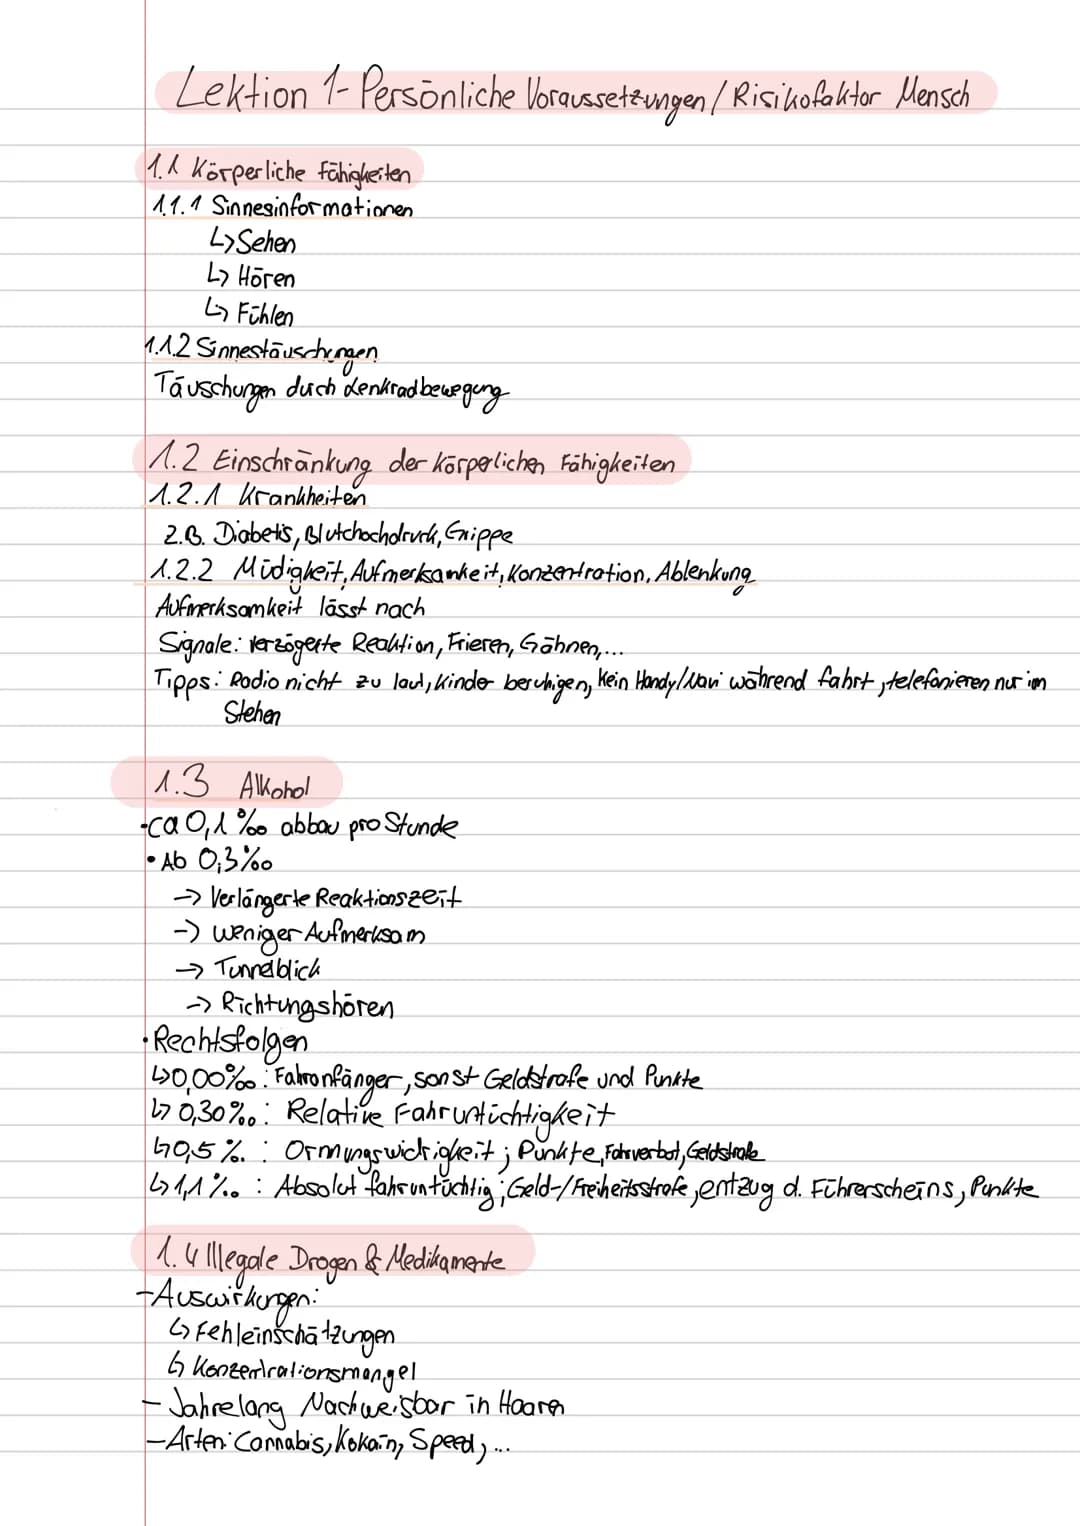 Lektion 1- Persönliche Voraussetzungen / Risikofaktor Mensch
1.1 Körperliche Fähigkeiten
1.1.1 Sinnesinformationen
↳ Sehen
↳ Hören
↳ Fühlen
1.1.2 Sinnestäuschungen
Täuschungen durch Lenkradbewegung
1.2 Einschränkung der körperlichen Fähigkeiten
1.2.1 Krankheiten
z.B. Diabetis, Blutchochdruck, Grippe
1.2.2 Müdigkeit, Aufmerksamkeit, Konzentration, Ablenkung
Aufmerksamkeit lässt nach
Signale: verzögerte Reaktion, Frieren, Gähnen,...
Tipps: Radio nicht zu laut, Kinder beruhigen, kein Handy/Navi während fahrt, telefonieren nur im
Stehen
1.3 Alkohol
•ca 0,1‰ abbau pro Stunde
• Ab 0,3‰
-> Verlängerte Reaktionszeit
-> weniger Aufmerksam
-> Tunnelblick
-> Richtungshören
• Rechtsfolgen
↳ 0,00‰: Fahranfänger, sonst Geldstrafe und Punkte
↳ 0,30‰: Relative Fahruntüchtigkeit
↳ 0,5‰: Ornungswidrigkeit; Punkte, Fahrverbot, Geldstrafe
↳ 1,1‰: Absolut fahruntüchtig; Geld-/Freiheitsstrafe, entzug d. Führerscheins, Punkte
1.4 Illegale Drogen & Medikamente
-Auswirkungen:
↳ Fehleinschätzungen
↳ Konzentrationsmangel
- Jahrelang Nachweisbar in Haaren
-Arten: Cannabis, Kokain, Speed,...